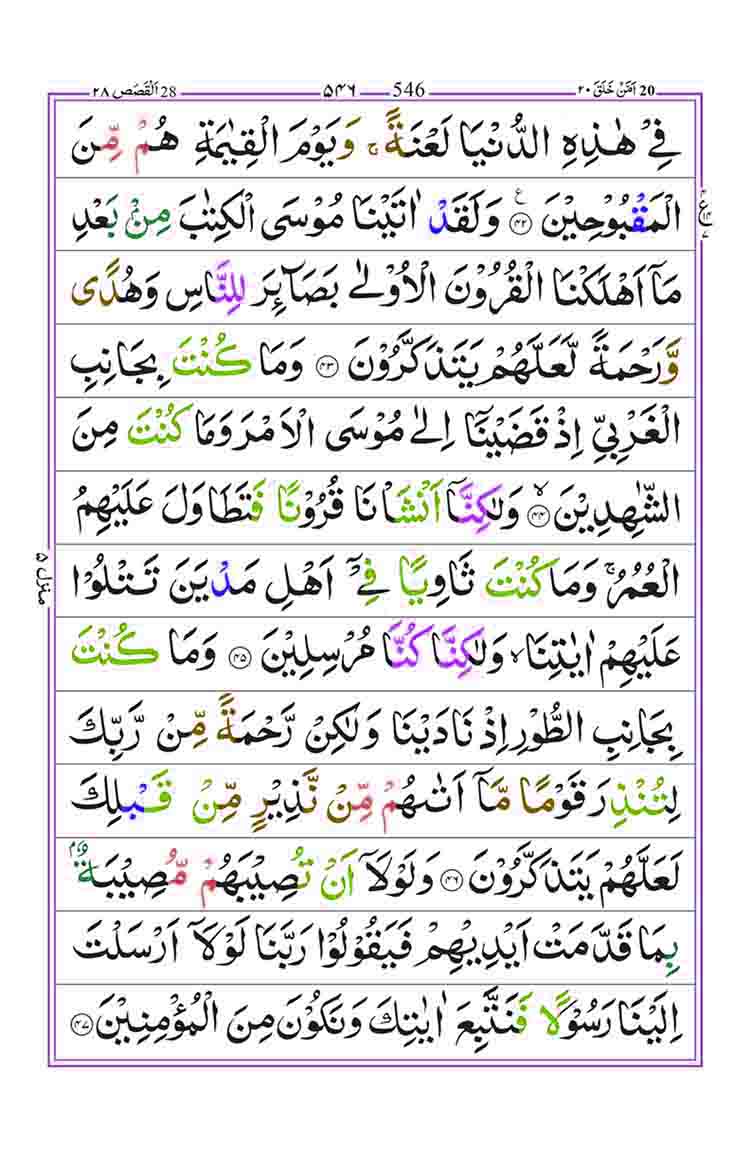 20 اَمَّنْ خَلَقَ ۲۰ 546 ۵۴۶ 28 اَلْقَصَص ۲۸
فِیْ هٰذِهِ الدُّنْیَا لَعْنَةً ۚ وَیَوْمَ الْقِیٰمَةِ هُمْ مِّنَ
الْمَقْبُوْحِیْنَ ﴿۴۲﴾ وَلَقَدْ اٰتَیْنَا مُوْسَی الْکِتٰبَ مِنْۢ بَعْدِ
مَاۤ اَهْلَکْنَا الْقُرُوْنَ الْاُوْلٰی بَصَآئِرَ لِلنَّاسِ وَهُدًی
وَّرَحْمَةً لَّعَلَّهُمْ یَتَذَکَّرُوْنَ ﴿۴۳﴾ وَمَا کُنْتَ بِجَانِبِ
الْغَرْبِیِّ اِذْ قَضَیْنَاۤ اِلٰی مُوْسَی الْاَمْرَ وَمَا کُنْتَ مِنَ
الشّٰهِدِیْنَ ﴿۴۴﴾ۙ وَلٰکِنَّاۤ اَنْشَاْنَا قُرُوْنًا فَتَطَاوَلَ عَلَیْهِمُ
الْعُمُرُ ۚ وَمَا کُنْتَ ثَاوِیًا فِیْۤ اَهْلِ مَدْیَنَ تَتْلُوْا
عَلَیْهِمْ اٰیٰتِنَا ۙ وَلٰکِنَّا کُنَّا مُرْسِلِیْنَ ﴿۴۵﴾ وَمَا کُنْتَ
بِجَانِبِ الطُّوْرِ اِذْ نَادَیْنَا وَلٰکِنْ رَّحْمَةً مِّنْ رَّبِّکَ
لِتُنْذِرَ قَوْمًا مَّاۤ اَتٰىهُمْ مِّنْ نَّذِیْرٍ مِّنْ قَبْلِکَ
لَعَلَّهُمْ یَتَذَکَّرُوْنَ ﴿۴۶﴾ وَلَوْلَاۤ اَنْ تُصِیْبَهُمْ مُّصِیْبَةٌۢ
بِمَا قَدَّمَتْ اَیْدِیْهِمْ فَیَقُوْلُوْا رَبَّنَا لَوْلَاۤ اَرْسَلْتَ
اِلَیْنَا رَسُوْلًا فَنَتَّبِعَ اٰیٰتِکَ وَنَکُوْنَ مِنَ الْمُؤْمِنِیْنَ ﴿۴۷﴾
منزل ۵